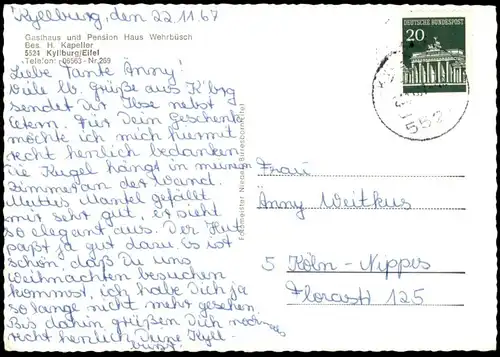 Kyllburg, den 22.11.67
Gasthaus und Pension Haus Wehrbüsch
Bes. H. Kapeller
5524 Kyllburg/Eifel
Telefon: 06563 - Nr. 269
Liebe Tante Änny!
Viele lb. Grüße aus K'brg
sendet Dir Ilse nebst
Eltern. Für Dein Geschenk
möchte ich mich hiermit
recht herzlich bedanken.
Die Kugel hängt in meinem
Zimmer an der Wand.
Muttis Mantel gefällt
mir sehr gut, er sieht
so elegant aus. Der Hut
paßt ja gut dazu. Es ist
schön, daß Du uns
Weihnachten besuchen
kommst, ich habe Dich ja
so lange nicht mehr gesehen.
Bis dahin grüßen Dich noch
recht herzlich Deine Kyll-
Fotomeister Nieders Birresborn/Eifel
DEUTSCHE BUNDESPOST
20
552
Frau
Änny Weitkus
5 Köln-Nippes
Florastr. 125